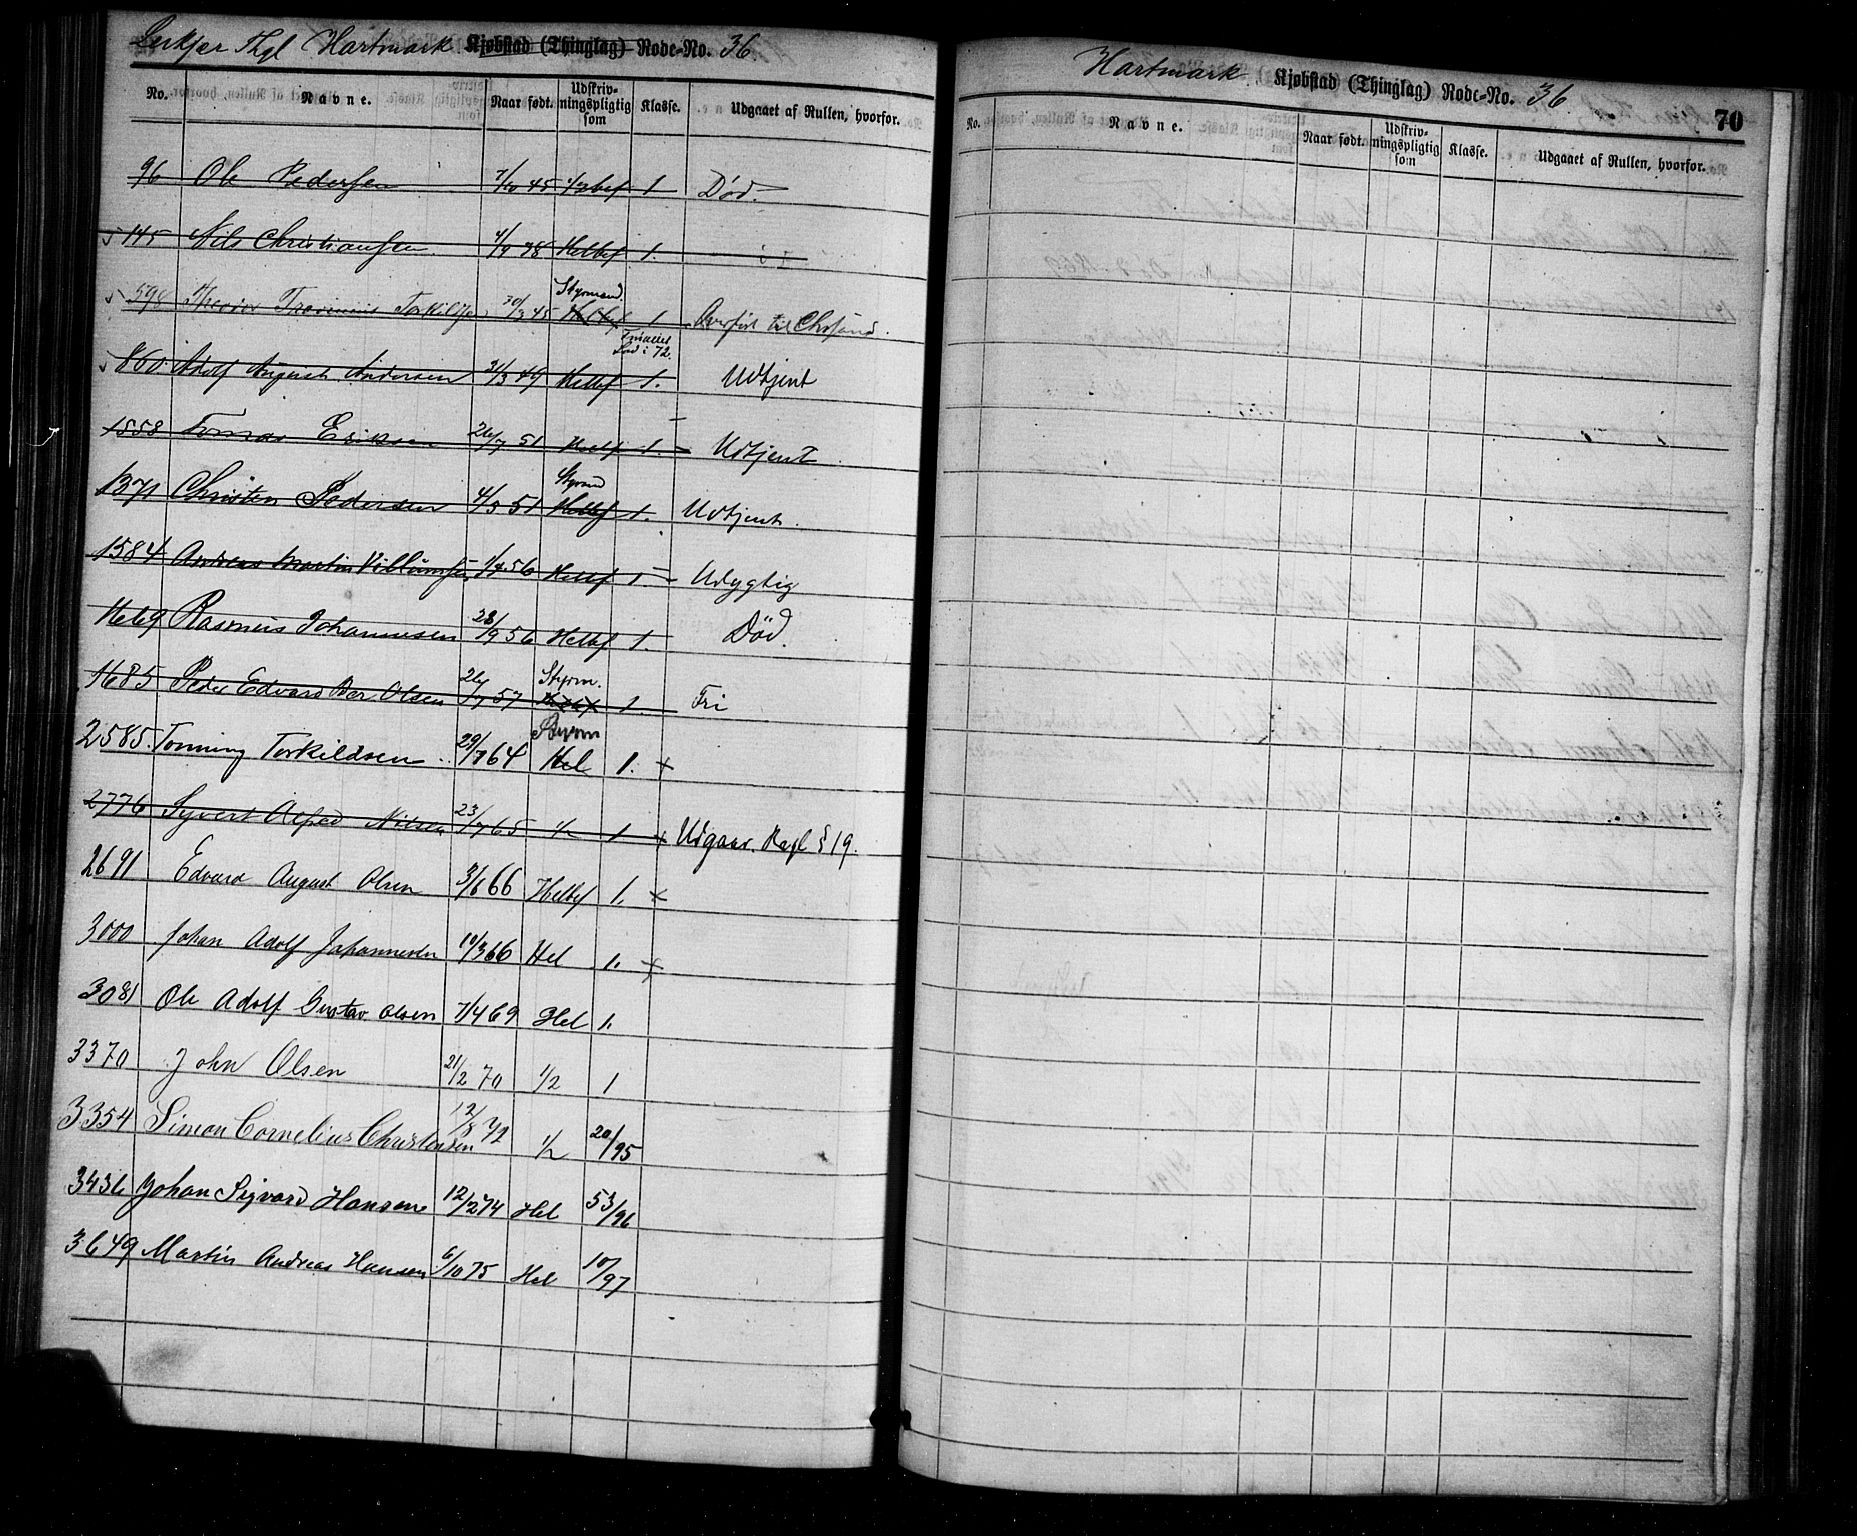 Lerkjær Thgl Hartmark Kjøbstad (Thinglag) Rode-No. 36
No. Navne. Naar født. Udskriv-ningspligtig som Klasse. Udgaaet af Rullen, hvorfor.
96 Ole Pedersen 7/10 45 1/2bef 1 Død.
145 Nils Christiansen 4/9 38 Helbef 1.
Styrmand
598 Theodor Torkilsen 30/3 45 Helbef 1 Overført til Chrsand.
Frivillet Lod i 72.
860 Adolf August Andersen 31/3 49 Helbef 1. Udtjent
1558 Tomas Eriksen 26/7 51 Helbf 1. Udtjent
Styrmd
1371 Christen Pedersen 4/5 51 Helbef 1. Udtjent.
1584 Andreas Martin Villumsen 1/7 56 Helbf 1 Udygtig
1669 Rasmus Johannesen 28/9 56 Helbef 1. Død.
Styrm.
1685 Peder Edvard Ber. Olsen 26/7 57 Helbf 1. Fri
Styrm
2585. Tonning Torkildsen 29/7 64 Hel 1. x
2776 Syvert Alfred Nilsen 23/7 65 1/2 1 x Udgaar. Regl § 19.
2691 Edvard August Olsen 3/6 66 Helbef 1. x
3000 Johan Adolf Johannesen 10/3 66 Hel 1. x
3081 Ole Adolf Gustav Olsen 7/4 69 Hel 1.
3370 John Olsen 21/2 70 1/2 1
3354 Simon Cornelius Christensen 12/8 72 1/2 20/95
3436 Johan Sigvard Hansen 12/2 74 Hel 53/96
3649 Martin Andreas Hansen 6/10 75 Hel 10/97
Hartmark Kjøbstad (Thinglag) Rode-No. 36
70
No. Navne. Naar født. Udskriv-ningspligtig som Klasse. Udgaaet af Rullen, hvorfor.